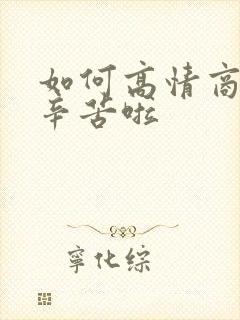 如何高情商
辛苦啦
寧化综